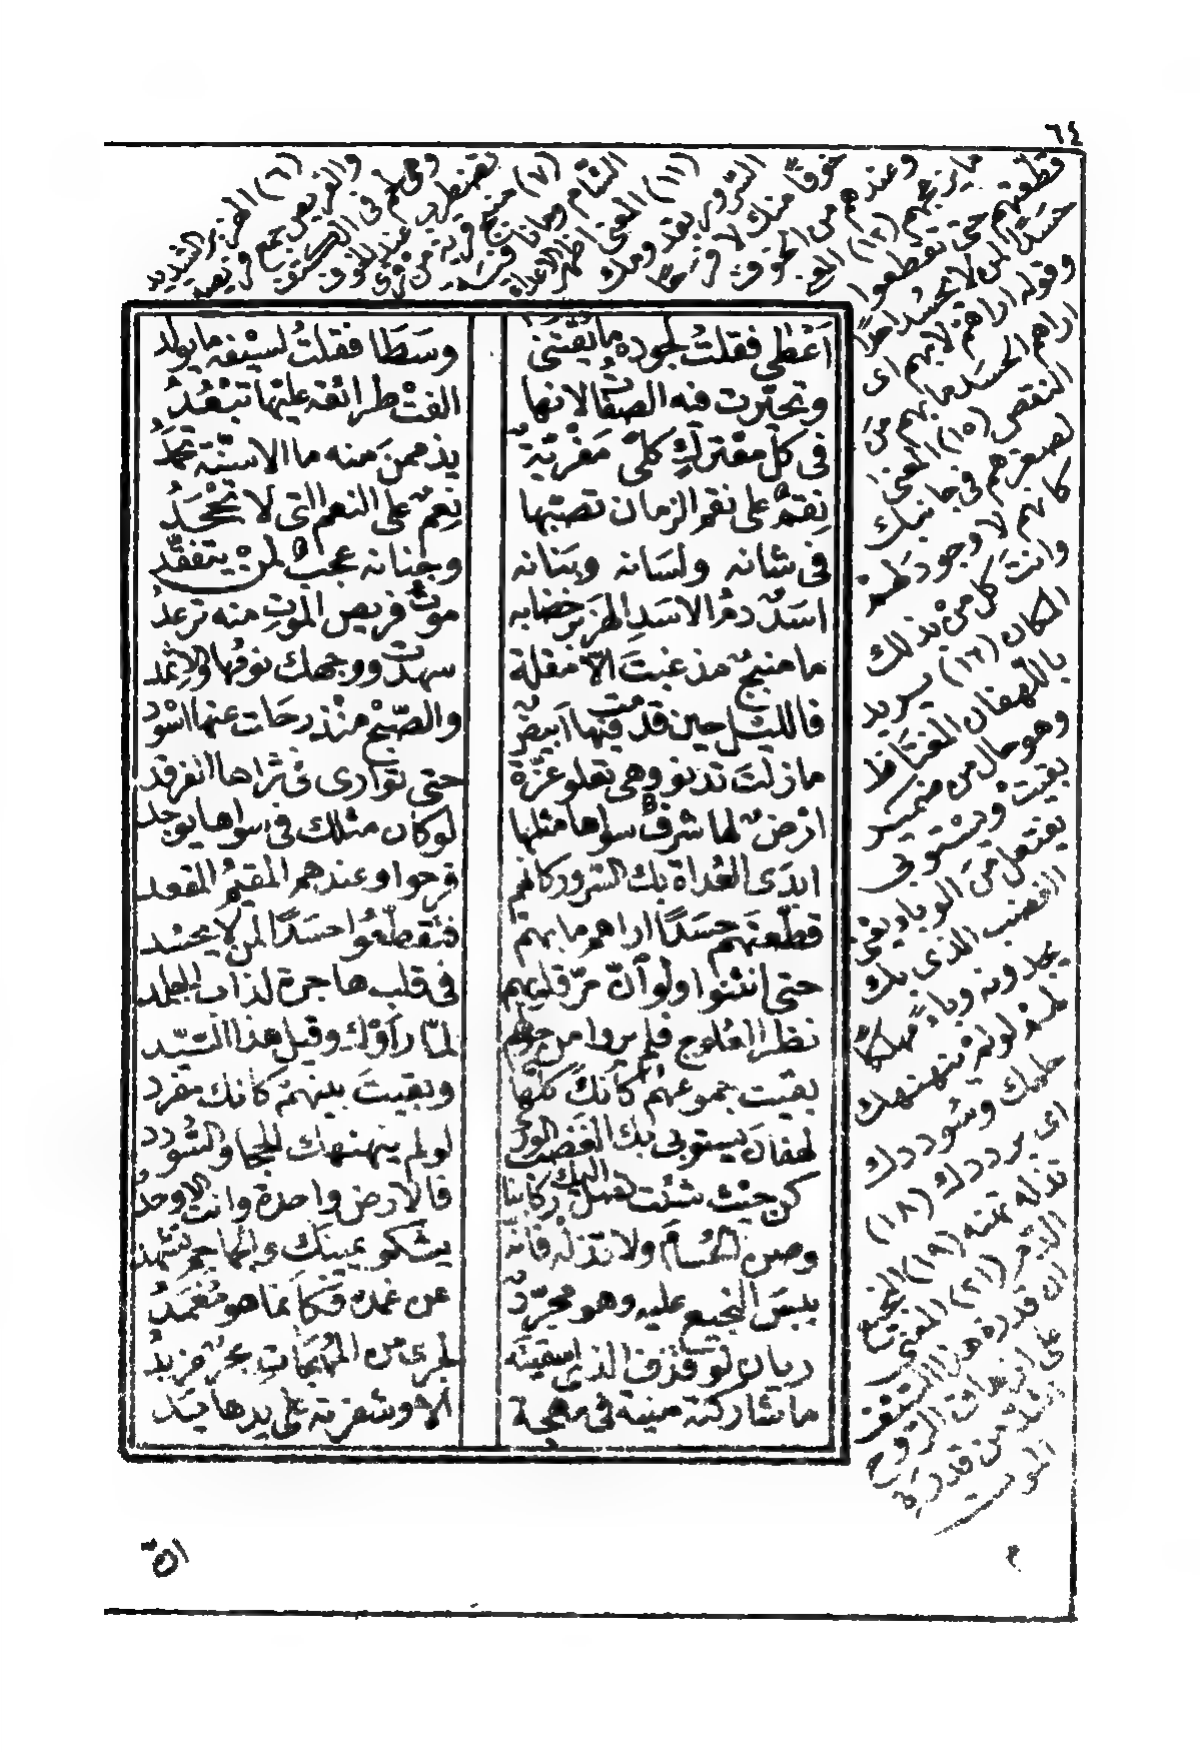 ٦٤
اَعْطٰى فقلتُ لجوده ما يُقتنى وَسَطَا فقلتُ لسيفه ما يولد
وتحيّرت فيه الصفاتُ لانها الفتْ طرائقه عليها تبعُدُ
فى كلّ معتركٍ كلىً مَفْريّةٌ يذممنَ منه ما الاسنّة تحمدُ
نِقمٌ على نقم الزمان تصبّها نِعمٌ على النعم التى لا تُجْحَدُ
فى شانه ولسَانه وبَنانه وجَنانه عجبٌ لمنْ يتفقّد
اسَدٌ دمُ الاسَدِ الهزبر خضابه موتٌ فريص الموتِ منه ترعدُ
ما منبجٌ مذ غبتَ الّا مقلة سهدت ووجهك نومُها والاِثمد
فالليْل حين قدمت فيها اَبيضٌ والصّبح منْذ رحلت عنها اسْود
ما زلتَ تدنو وهى تعلو عزّة حتى توارى فى ثراها الفرقد
ارْضٌ لها شرفٌ سواها مثلها لو كان مثلك فى سواها يوجد
ابدَى العُداة بك السرور كانهم فرحوا وعندهم المقيمُ المقعد
قطّعتهم حَسَدًا اراهم ما بهم فتقطّعوا حسَدًا لمن لا يحسُد
حتى انثنوا ولو اَنّ حرّ قلوبهم فى قلب هاجرة لذاب الجلمد
نظر العُلوج فلم يروا من حولهم لمّا راَوْك وقيل هذا السّيّد
بقيت جموعهم كاَنكَ كلّها وبقيتَ بينهم كانك مفرد
لهفانَ يستوبى بك الغضبَ الورى لو لم ينهنهك الحجا والسّودد
كن حيثُ شئت تسر اليك ركابنا فالارض واحدة وانت الاوحدُ
وصن الحُسامَ ولا تذلْه فانّه يشكو يمينك والجماجم تشهد
يبسَ النجيع عليه وهو مجرّدٌ عن غمده فكاَنما هو مُغمَدُ
ريان لو قذف الذى اسقيته لجرى من المُهَجاتِ بحرٌ مزبدُ
ما شاركته منية فى مهجة الّا وشفرته على يدها يَد
(٦) الهزبر الشديد
والفريص جمع فريصة
(٧) منبج
(١١) المعنى اظهر الاعداء
السّرور بقدومك
خوفًا منك لا فرحًا
وعندهم من الخوف
ما يزعجهم (١٢) المعنى
قطعتهم حتى تقطعوا
حَسَدًا لمن لا يحسُد احدًا
وقوله اراهم ما بهم اى
اراهم الحسَد ما بهم من
النقص (١٥) المعنى
لصغرهم فى جانبك
كانهم لا وجود لهم
وانتَ كل من بذلك
المكان (١٦) يريد
باللهفان المغتاظ
وهو حال من ضمير
بقيت ويستوبى
يفتعل من الوباء يعنى
الغضب الذى بك
يجدونه وباءً مهلكًا
لهم لو لم ينهنهك
حلمك وسُوددك
اى يرددك (١٨)
تذله تمتهنه (١٩) النجيع
الدّم (٢١) المعنى
ان قدرة هذا الشفر
على ازهاق الروح
من قدرة
الموت